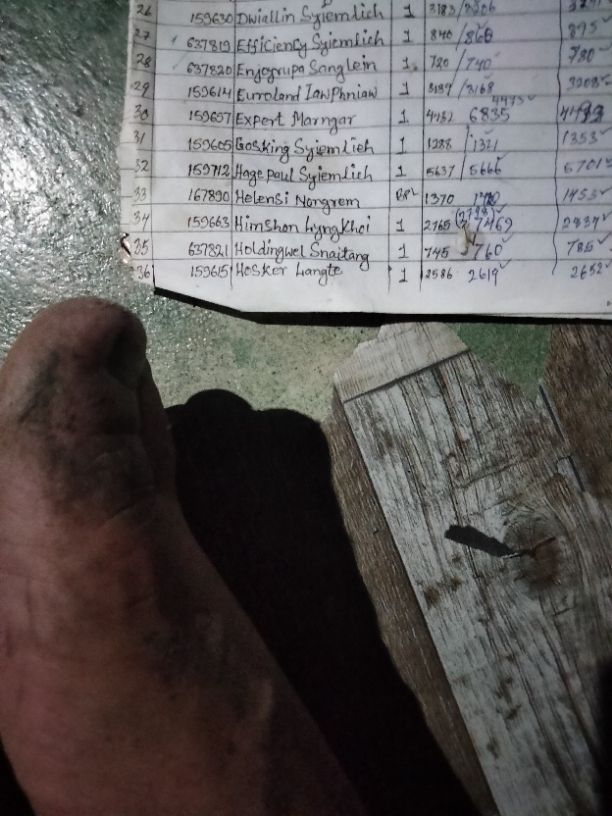 26 159630 Dwiallin Syiemlieh 1 3183 / 3206
27 637819 Efficiency Syiemlieh 1 840 / 860 875
28 637820 Enjogrupa Sanglein 1 720 / 740 780
29 159614 Euroland Iawphniaw 1 3137 / 3168 3208
30 159607 Expert Marngar 1 4432 6835 4473
31 159605 Gosking Syiemlieh 1 1288 / 1321 1353
32 159712 Hagepaul Syiemlieh 1 5637 / 5666 5701
33 167890 Helensi Nongrem 1370 1453
34 159663 Himshon Lyngkhoi 1 2765 7469 2837
35 637821 Holdingwel Snaitang 1 745 760 785
36 159615 Hosker Langte 1 2586 2619 2652